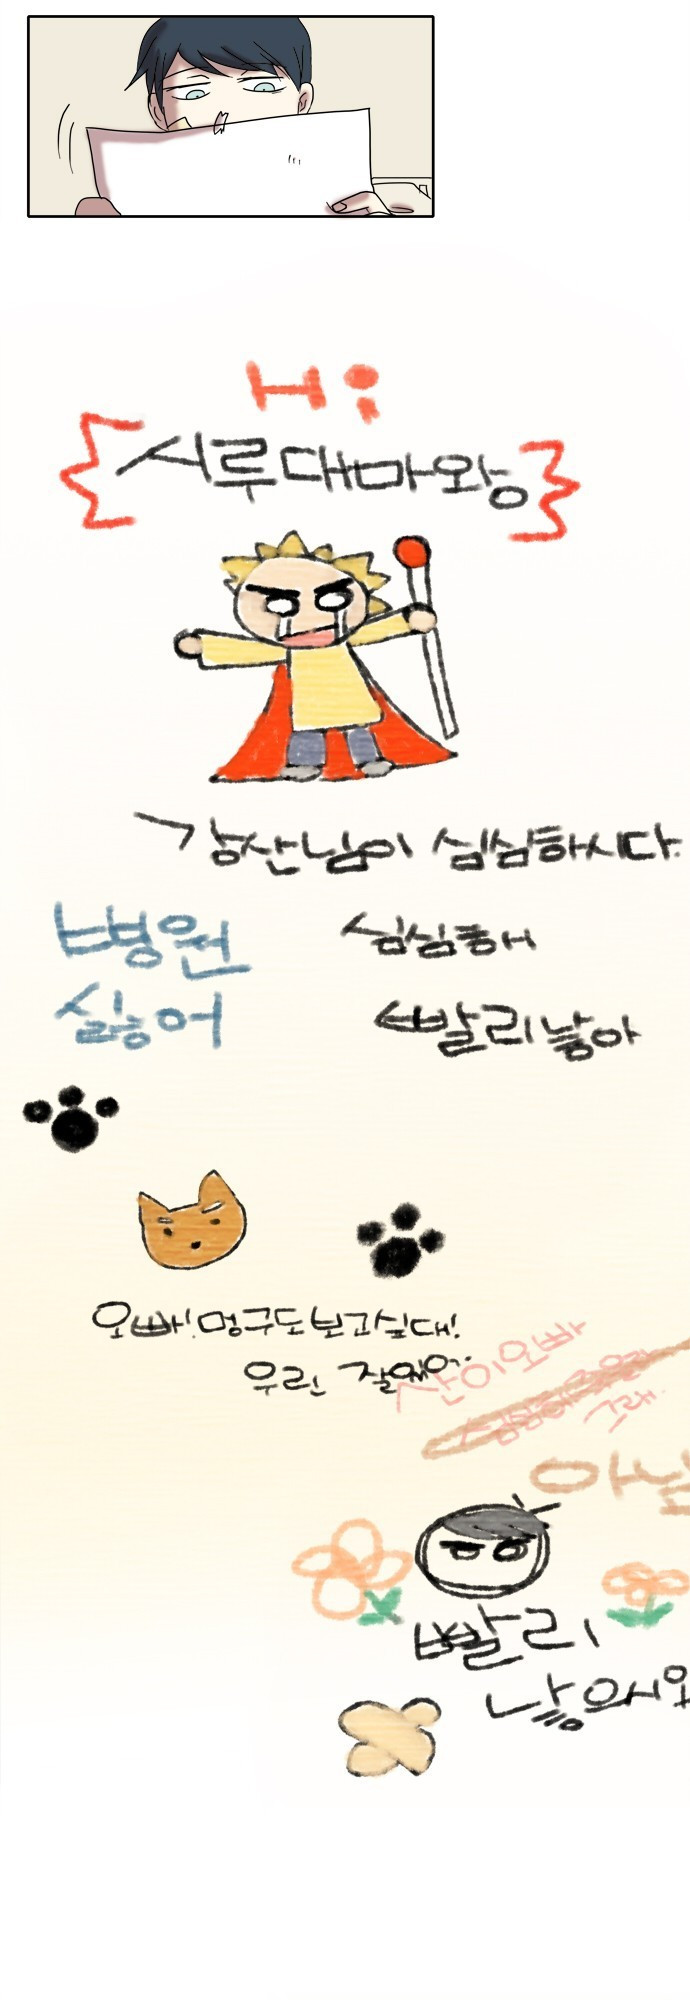 Hi
시루대마왕
강산님이 심심하시다.
병원
싫어
심심해
빨리낳아
오빠! 멍구도보고싶대!
우린 잘있어..
산이오빠
심심해
그래.
아님
빨리
낳으시오